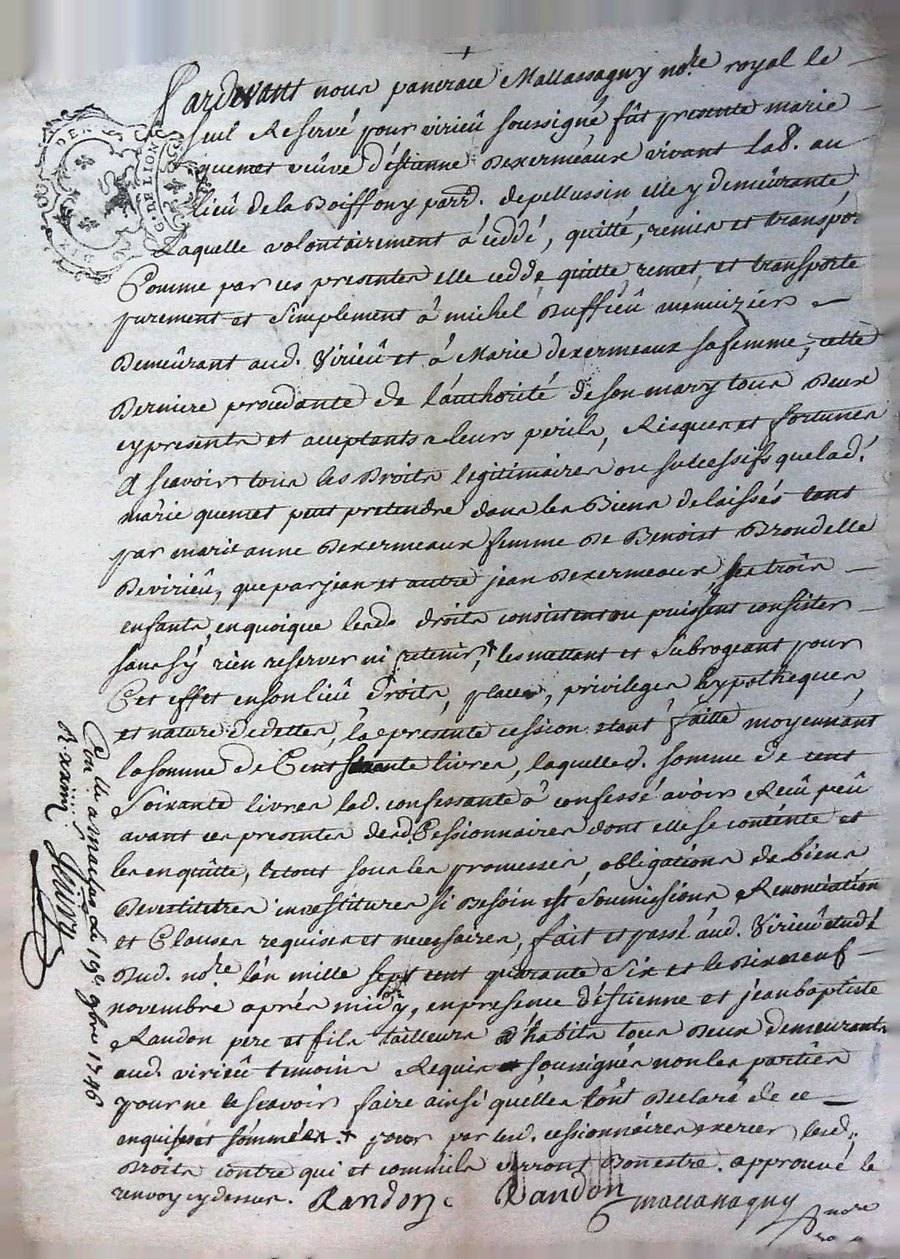 +
Pardevant nous pancrace Mallassagny nore. royal le
seul Reservé pour virieu soussigné fût presente marie
quemet veûve d'estienne Dexermeaux vivant lab. au
lieu de la Boiffony parr. de pellussin, elle y demeûrante
Laquelle volontairement à ceddé, quitté, remis et transpor.
Comme par ces presentes elle cedde quitte remet, et transporte
purement et simplement à michel Buffieu menuizier
Demeûrant aud. Virieu et à Marie dexermeaux sa femme, cette
Derniere procedante de l'authorité de son mary tous Deux
cy presents et acceptants a leurs perils, Risques et fortunes
A scavoir tous les Droits legitimaires ou successifs que lad.
marie quemet peut pretendre dans les Biens delaissés tant
par marie anne Dexermeaux femme de Benoist Brondelle
De virieu, que par jean et autre jean Dexermeaux ses trois
enfants, en quoique lesds droits consistent ou puissent consister
sans s'y rien reserver ni retenir,+ les mettant et subrogeant pour
Cet effet en son lieu Droits, place, privileges hypotheques
et nature de dettes, la presente cession etant faitte moyennant
la somme de Cent soixante livres, laquelled. somme de cent
Soixante livres lad. confessante à confessé avoir Reçû peû
avant ces presentes desd. Cessionnaires dont elle se contente et
les en quitte, le tout sous les promesses, obligations de biens
Devestitures investitures si Besoin est soumissions Renonciations
et Clauses requises et necessaires, fait et passé aud. Virieu etude
Dud. nore. l'an mille sept cent quarante six et le Dix neuf
novembre aprés midy, en presence d'estienne et jean baptiste
Randon pere et fils tailleurs d'habits tous Deux demeurants
aud. virieu temoins Requis et soussignes non les parties
pour ne le scavoir faire ainsi qu'elles l'ont Declaré de ce
enquises et sommées. + pour par lesd. cessionnaires exercer lesd.
Droits contre qui et comm'ils verront Bon estre. approuvé le
renvoy cy dessus. Randon Randon Mallassagny
nore
Con.lle a Maclas le 19e 9bre 1746
R.
G. DE LION